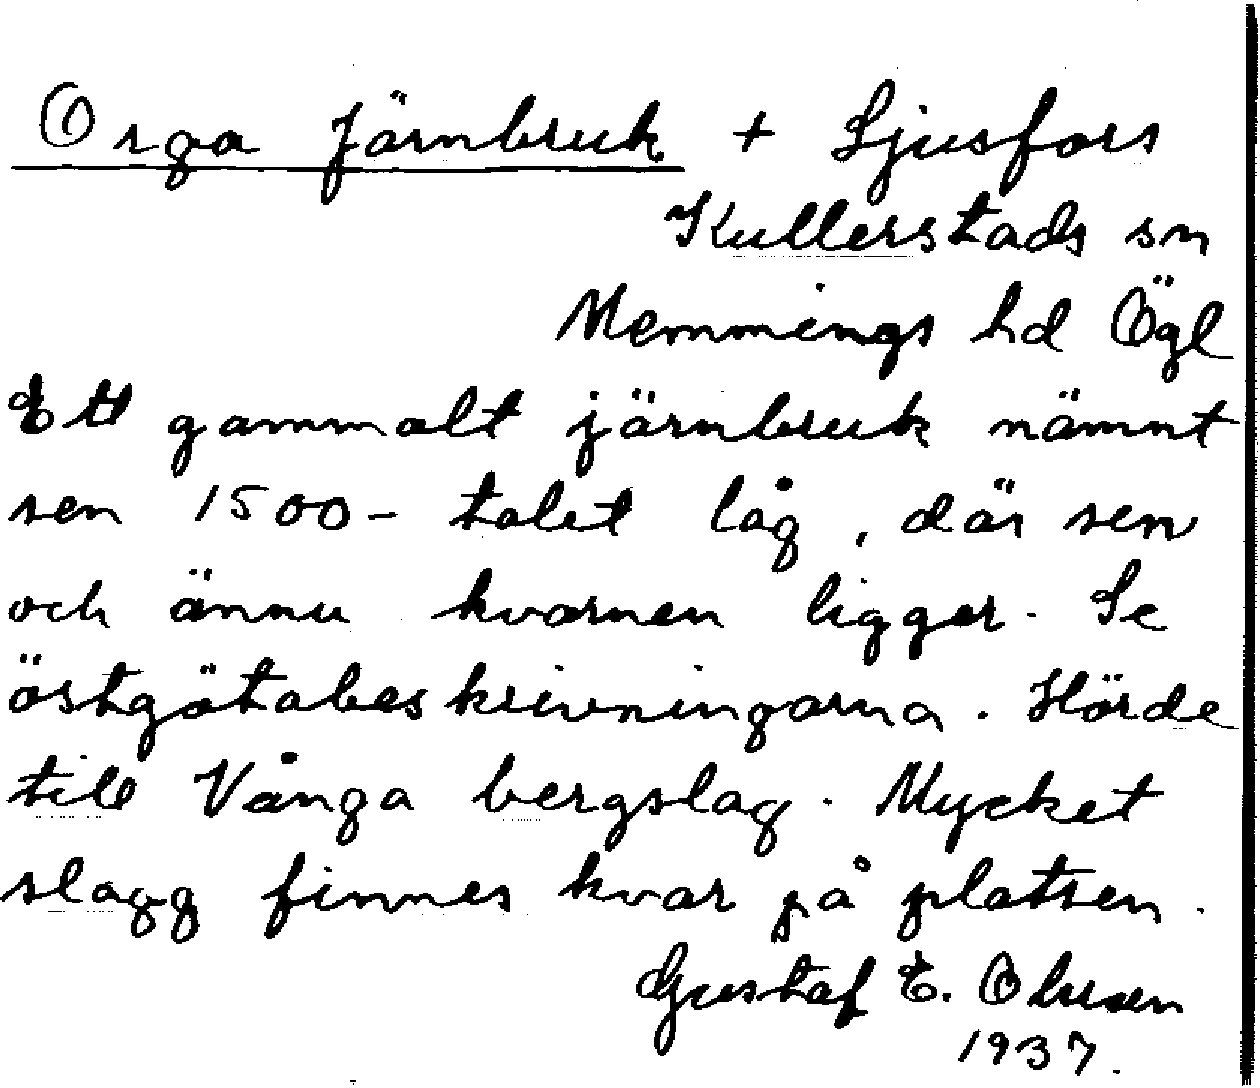 Orga järnbruk + Ljusfors
Kullerstads sn
Memmings hd Ögl
Ett gammalt järnbruk nämnt
sen 1500-talet låg, där sen
och ännu kvarnen ligger. Se
östgötabeskrivningarna. Hörde
till Vånga bergslag. Mycket
slagg finnes kvar på platsen.
Gustaf E. Olsson
1937.